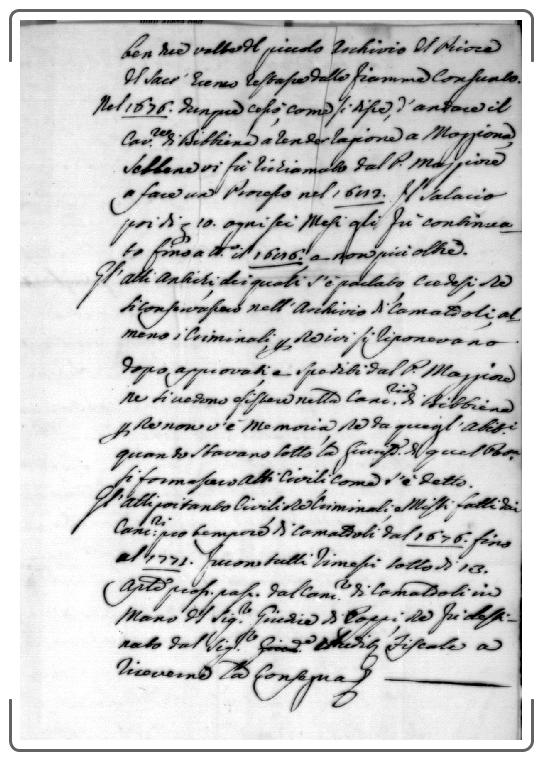 ben due volte dal piccolo Archivio del Priore
del Sacr' Eremo restasse dalle fiamme Consunto.
Nel 1676. dunque cessò, come si disse, d' andare il
Canre. di Bibbiena a render ragione a Moggiona,
Sebbene vi fù richiamato dal P. Maggiore
a fare un Processo nel 1692. Il Salario
poi di 10. ogni sei Mesi gli fù continua-
to fino a tt. il 1696. e non più oltre.
Gl' atti antichi dei quali s' è parlato credesi che
si conservassero nell' Archivio di Camaldoli, al-
meno i Criminali, che ivi si riponevano
dopo approvati e spediti dal P. Maggiore
ne si vedono esistere nella Canria. di Bibbiena
che non v' è memoria che da quegl' Abiti
quando stavano sotto la di quel
si formassero atti Civili come s' è detto.
Gl' atti pertanto Civili che Criminali, e Misti fatti dai
Canri. pro tempore di Camaldoli dal 1676. fino
al 1771. furon tutti rimessi sotto dì 13.
pass. dal Canre. di Camaldoli in
Mano del Sigre. Giudice di Poppi che fù desti-
nato dal Sigre. Fiscale a
riceverne la Consegna